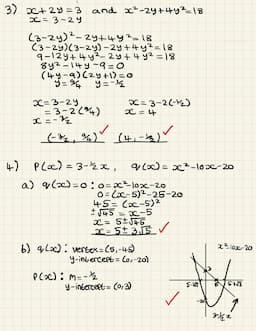 3) x+2y=3 and x²-2y+4y²=18
x=3-2y
(3-2y)²-2y+4y²=18
(3-2y)(3-2y)-2y+4y²=18
9-12y+4y²-2y+4y²=18
8y²-14y-9=0
(4y-9)(2y+1)=0
y=9/4 y=-1/2
x=3-2y x=3-2(-1/2)
=3-2(9/4) x=4
x=-3/2
(-3/2, 9/4) (4,-1/2)
4) P(x)=3-1/2x, q(x)=x²-10x-20
a) q(x)=0: 0=x²-10x-20
0=(x-5)²-25-20
45=(x-5)²
±√45=x-5
x=5±√45
x=5±3√5
b) q(x): vertex=(5,-45)
y-intercept=(0,-20)
P(x): m=-1/2
y-intercept=(0,3)
x²-10x-20